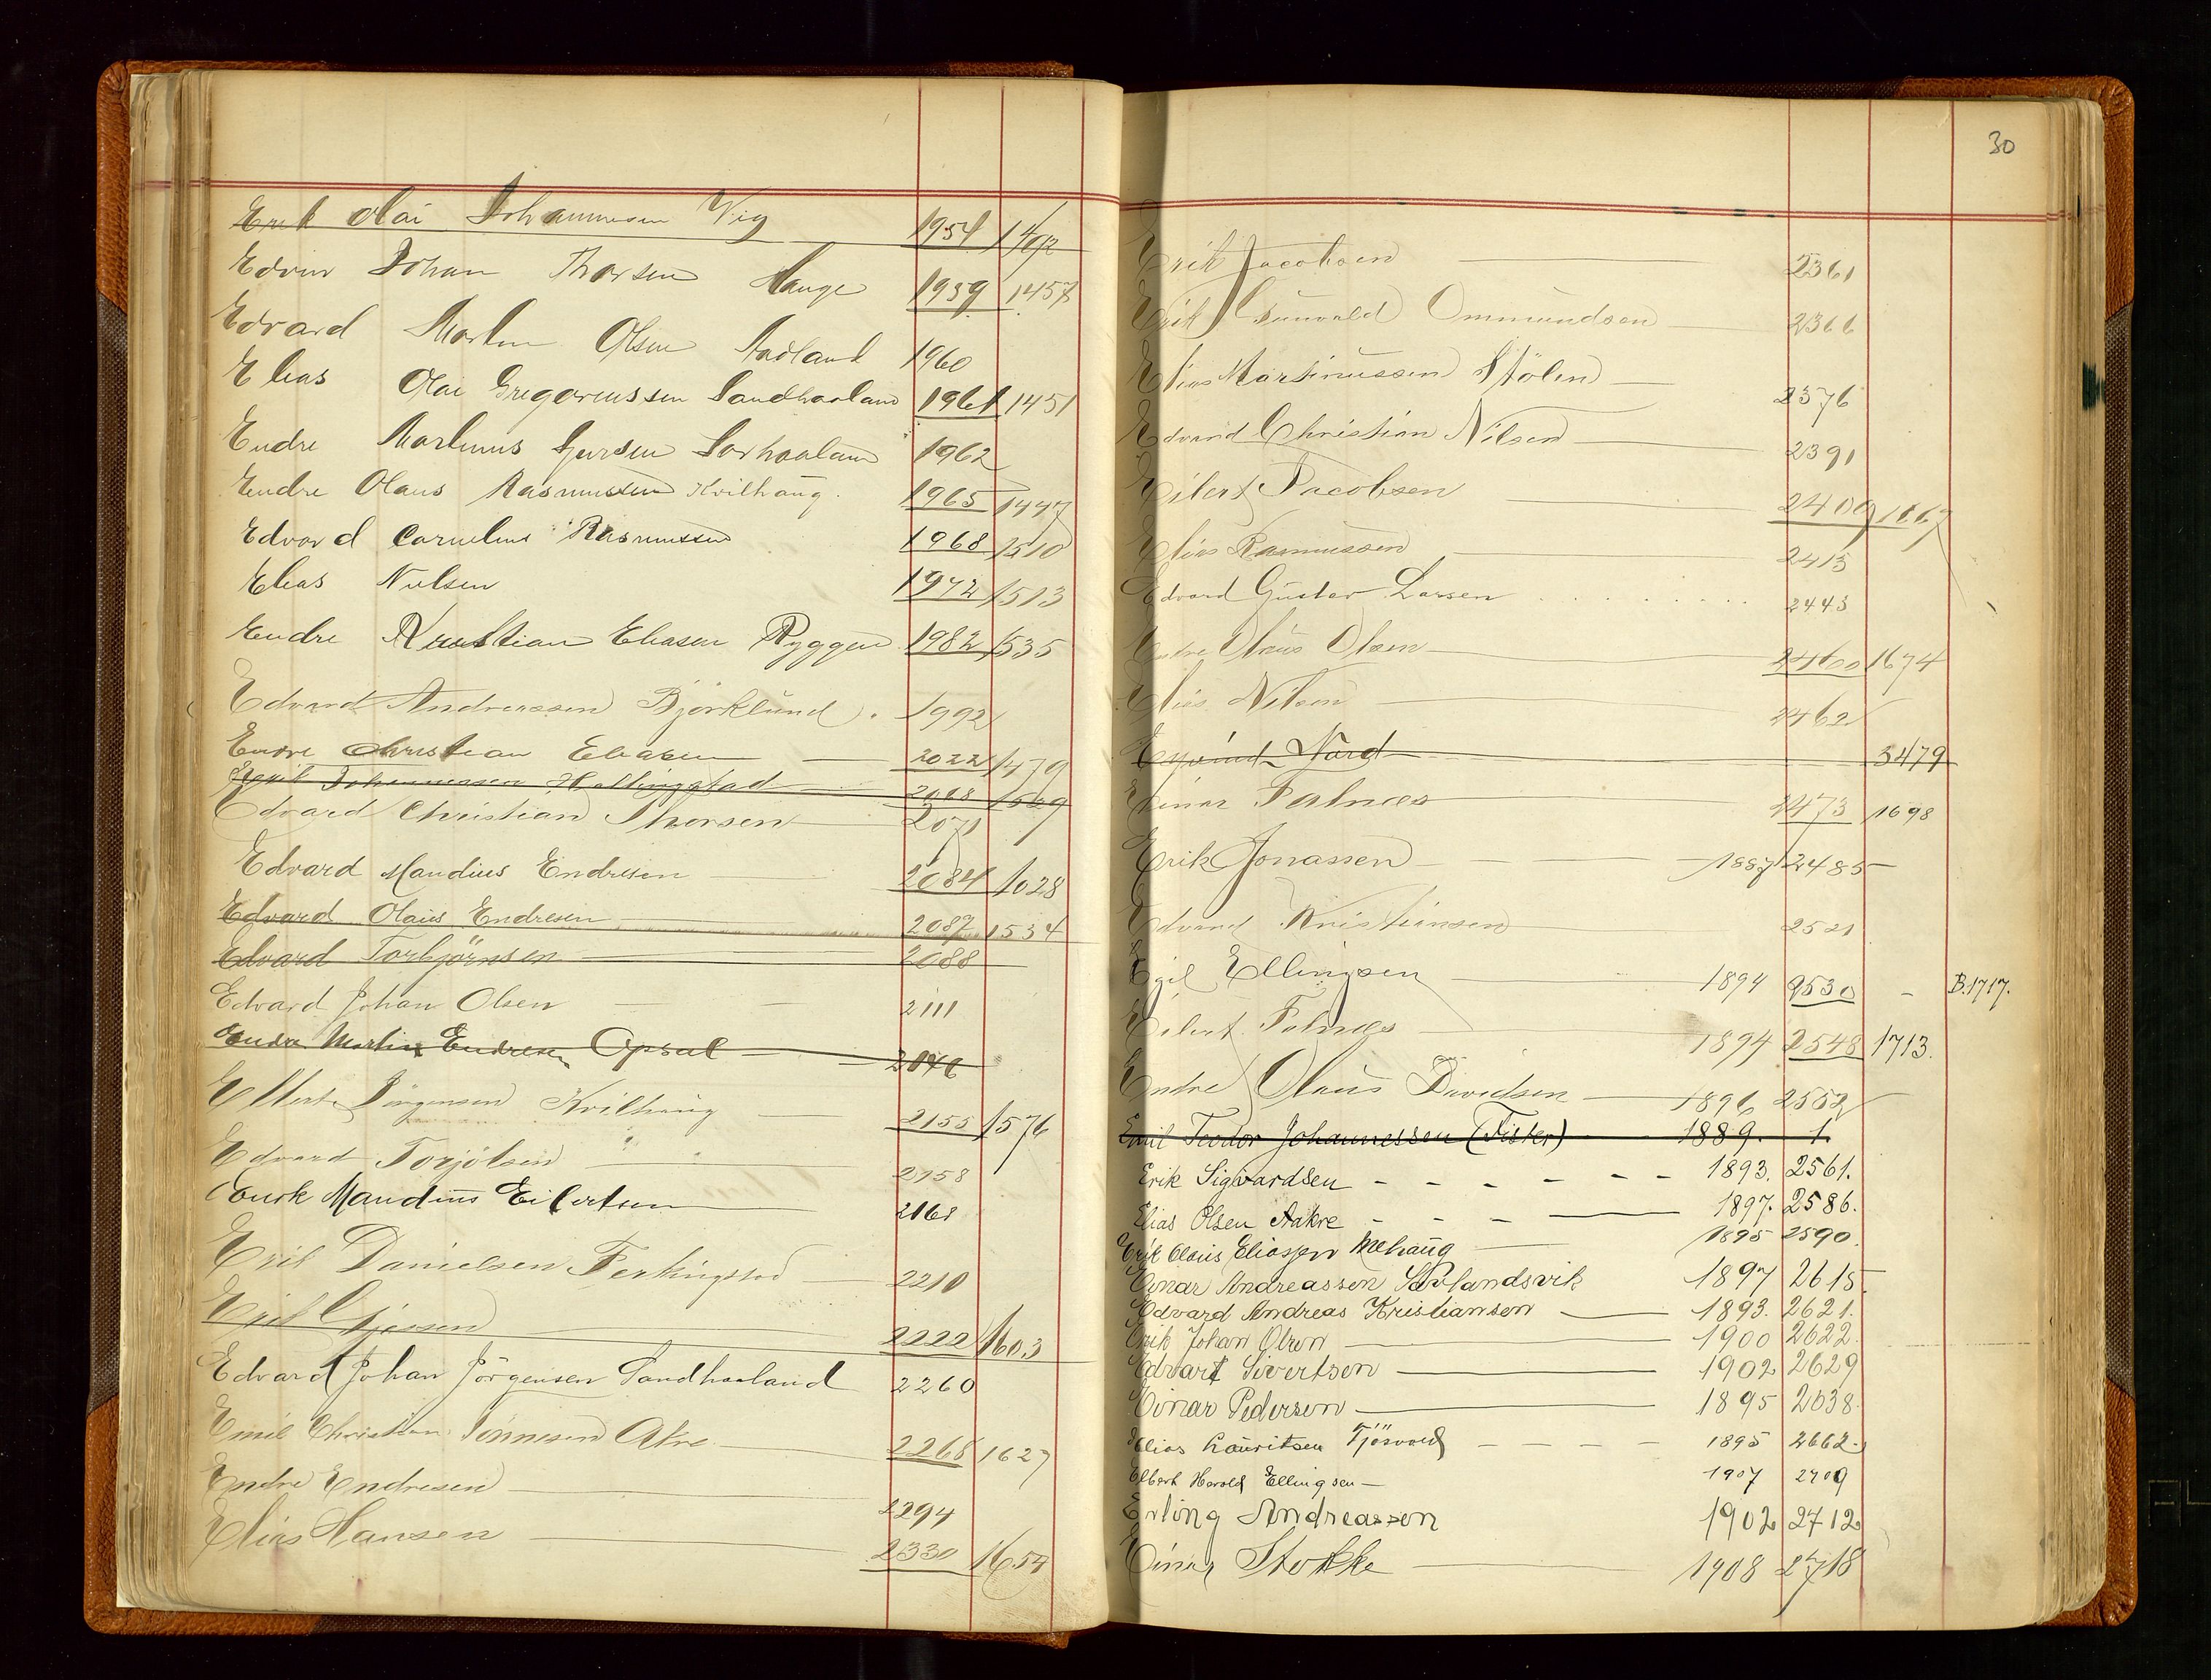 Erik Olai Johannesen Vig 1954 1492
Edvin Johan Thorsen Hauge 1959 1457
Edvard Martin Olsen Aadland 1960
Elias Olai Gregoriussen Sandhaaland 1961 1451
Endre Martinus Sjursen Sørhaaland 1962
Endre Olaus Rasmussen Kvilhaug. 1965 1447
Edvard Cornelius Rasmussen 1968 1510
Elias Nielsen 1972 1513
Endre Kristian Eliasen Ryggen 1982 1535
Edvard Andreassen Bjørklund. 1992
Endre Christian Eliasen 2022 1479
Johannessen Hallingstad 2068 1569
Edvard Christian Thorsen 2071
Edvard Mandius Endresen 2084 1028
Edvard Olaus Endresen 2087 1534
Edvard Torbjörnsen 2088
Edvard Johan Olsen 2111
Endre Martin Endresen Opsal
Ellert Jörgensen Kvilhaug 2155 1576
Edvard Torjölsen 2158
Mandius Eilertsen 2168
Erik Danielsen Ferkingstad 2210
Erik 2222 1603
Edvard Johan Jörgensen Sandhaaland 2260
Emil Christian Tönnesen Akre 2268 1627
Endre Endresen 2294
Elias Hansen 2330 1654
30
Erik Jacobsen 2361
Erik Gunvald Ommundsen 2366
Elias Martinussen Stölen 2376
Edvard Christian Nilsen 2391
Eilert Jacobsen 2409 1667
Elias Rasmussen 2415
Edvard Gustav Larsen 2443
Endre Olaus Olsen 2460 1674
Elias Nilsen 2462
Eyvind Nord 3479
Einar Falnæs 2473 1698
Erik Jonassen 1887 2485
Edvard Kristiansen 2521
Egil Ellingsen 1894 2530 - B.1717.
Eilert Falnæs 1894 2548 1713.
Endre Olaus Davidsen 1896 2552
Emil Teodor Johannessen (Fister) 1889. 1.
Erik Sigvardsen 1893. 2561.
Elias Olsen Aakre 1897. 2586.
Erik Olaus Eliassen Mehaug 1895 2590.
Einar Andreassen Sævlandsvik 1897 2615.
Edvard Andreas Kristiansen 1893. 2621.
Erik Johan Olsen 1900 2622.
Edvart Sivertsen 1902 2629
Einar Pedersen 1895 2638.
Elias Lauritsen Tjösvold 1895 2662.
Elbert Harold Ellingsen 1907 2709
Erling Andreassen 1902 2712
Einar Stokke 1908 2718